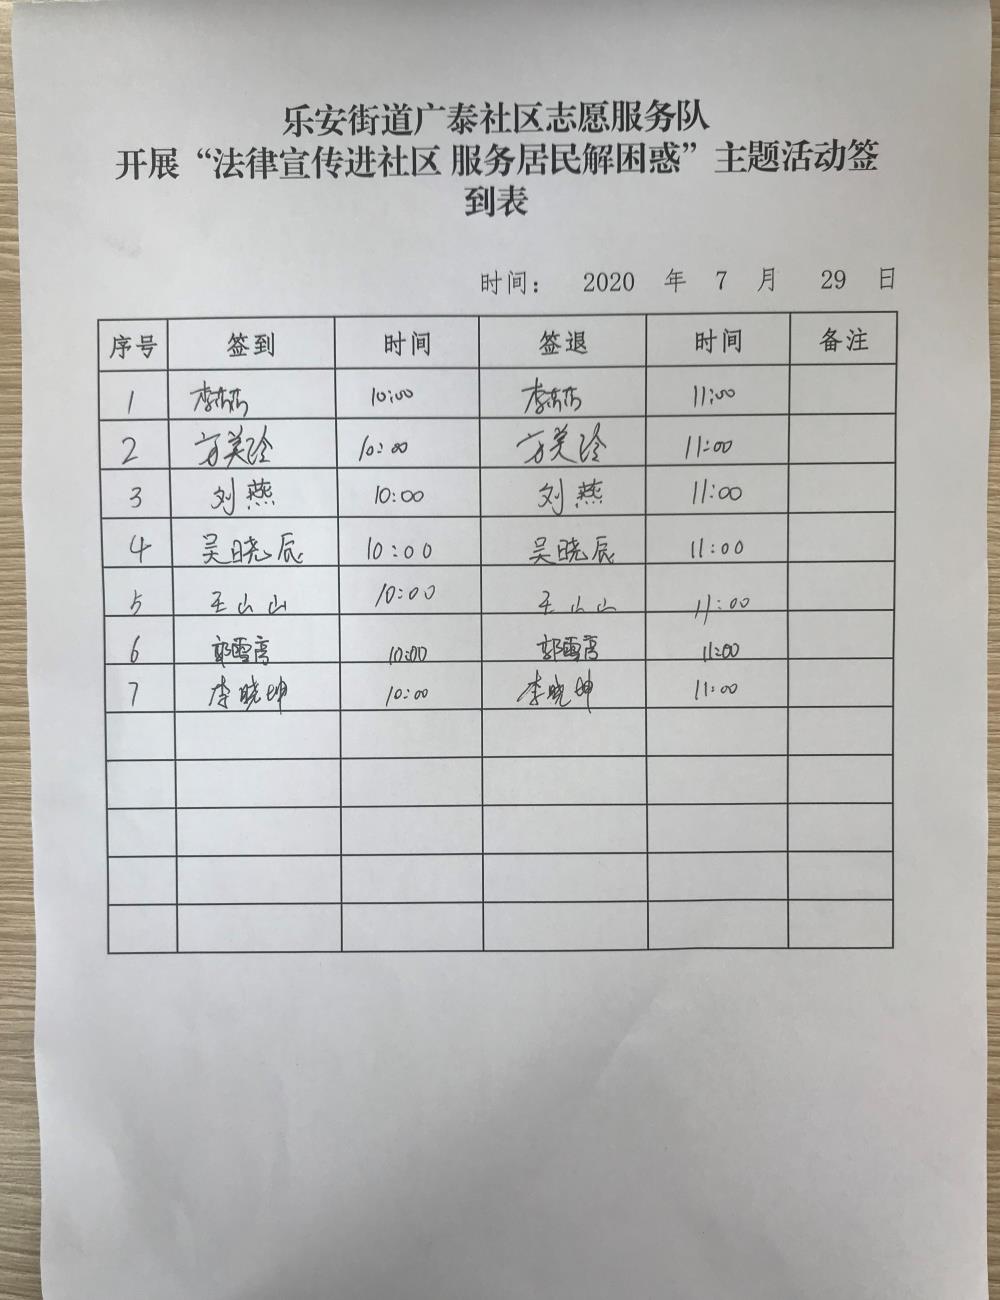 乐安街道广泰社区志愿服务队
开展“法律宣传进社区 服务居民解困惑”主题活动签
到表
时间： 2020 年 7 月 29 日
序号 签到 时间 签退 时间 备注
1 10:00 11:00
2 方美玲 10:00 方美玲 11:00
3 刘燕 10:00 刘燕 11:00
4 吴晓辰 10:00 吴晓辰 11:00
5 王山山 10:00 王山山 11:00
6 10:00 11:00
7 李晓坤 10:00 李晓坤 11:00